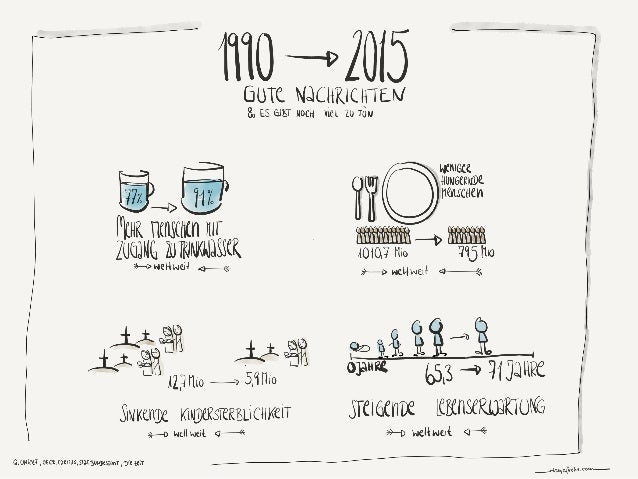 1990 → 2015
GUTE NACHRICHTEN
& ES GIBT NOCH VIEL ZU TUN
77% → 91%
MEHR MENSCHEN MIT
ZUGANG ZU TRINKWASSER
weltweit
WENIGER
HUNGERNDE
MENSCHEN
1010,7 Mio → 795 Mio
weltweit
12,7 Mio → 5,9 Mio
SINKENDE KINDERSTERBLICHKEIT
weltweit
0 JAHRE 65,3 → 71 JAHRE
STEIGENDE LEBENSERWARTUNG
weltweit
Q: UNICEF, OECD, DIE ZEIT